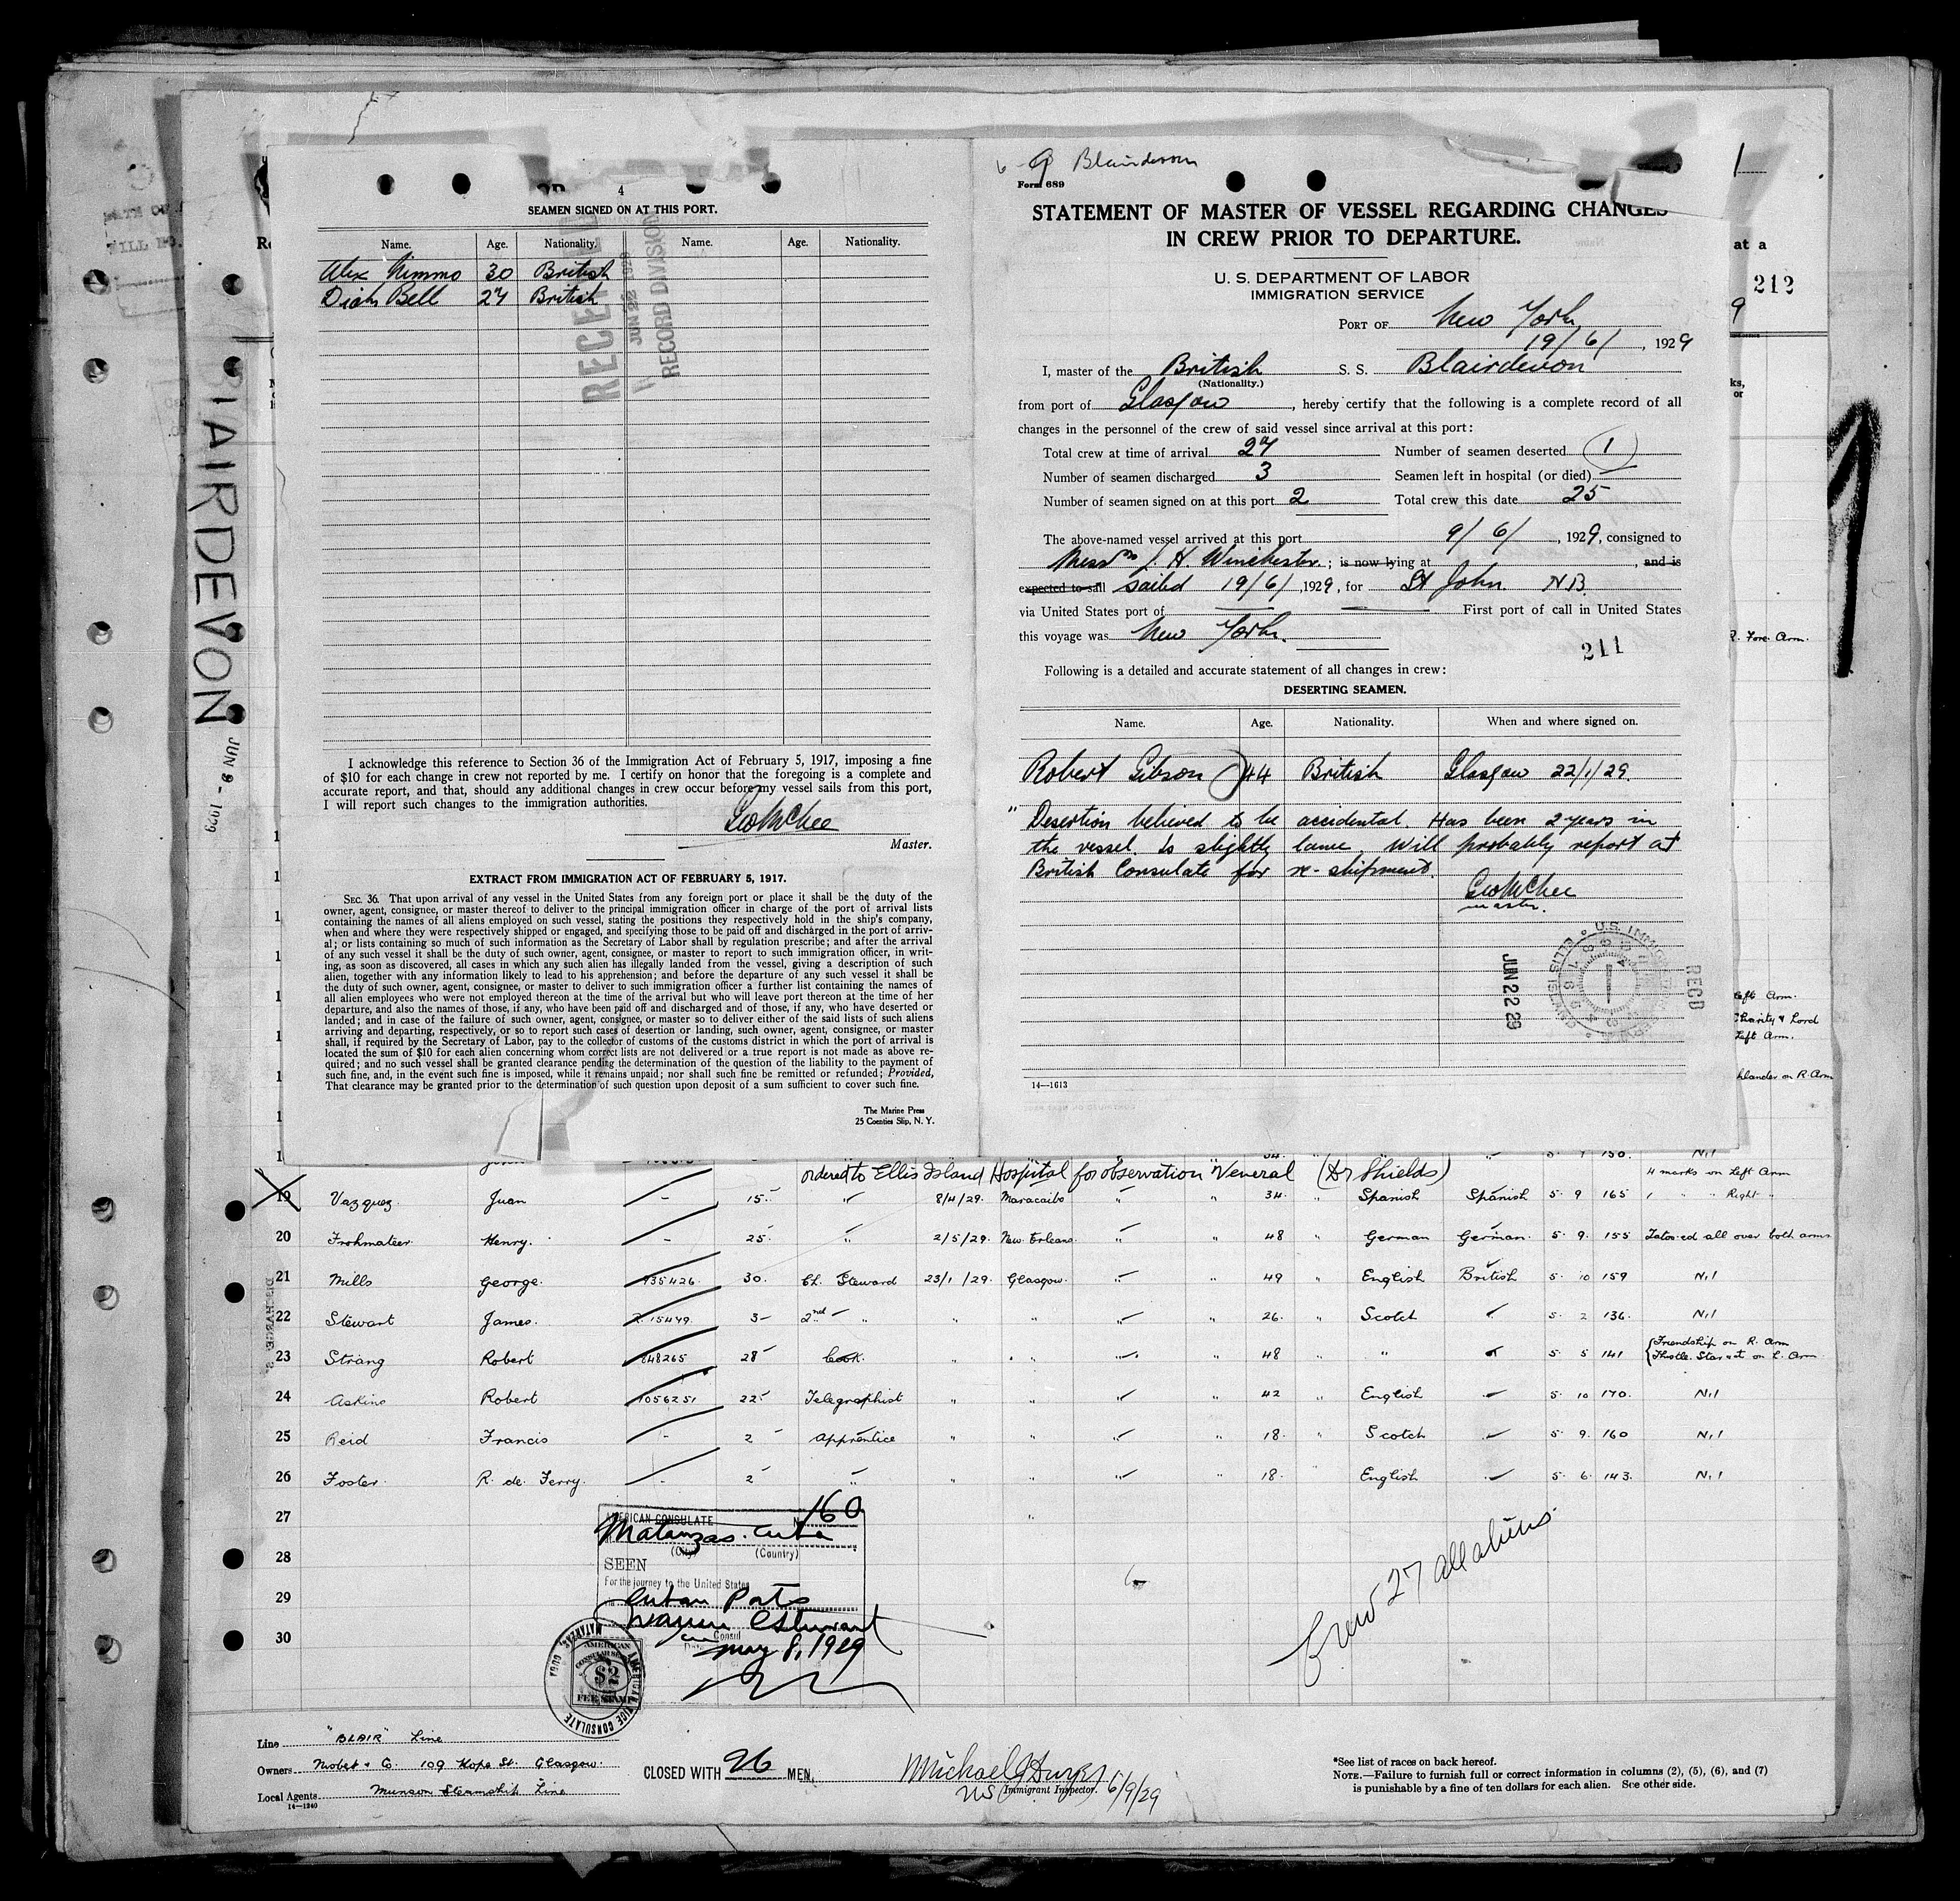 BLAIRDEVON
JUN 9 - 1929
4
SEAMEN SIGNED ON AT THIS PORT.
Name. Age. Nationality. Name. Age. Nationality.
Alex Nimmo 30 British
Bell 27 British
RECEIVED
JUN 22 1929
RECORD DIVISION
I acknowledge this reference to Section 36 of the Immigration Act of February 5, 1917, imposing a fine
of $10 for each change in crew not reported by me. I certify on honor that the foregoing is a complete and
accurate report, and that, should any additional changes in crew occur before my vessel sails from this port,
I will report such changes to the immigration authorities.
Geo McChee
Master.
EXTRACT FROM IMMIGRATION ACT OF FEBRUARY 5, 1917.
SEC. 36. That upon arrival of any vessel in the United States from any foreign port or place it shall be the duty of the
owner, agent, consignee, or master thereof to deliver to the principal immigration officer in charge of the port of arrival lists
containing the names of all aliens employed on such vessel, stating the positions they respectively hold in the ship's company,
when and where they were respectively shipped or engaged, and specifying those to be paid off and discharged in the port of arriv-
al; or lists containing so much of such information as the Secretary of Labor shall by regulation prescribe; and after the arrival
of any such vessel it shall be the duty of such owner, agent, consignee, or master to report to such immigration officer, in writ-
ing, as soon as discovered, all cases in which any such alien has illegally landed from the vessel, giving a description of such
alien, together with any information likely to lead to his apprehension; and before the departure of any such vessel it shall be
the duty of such owner, agent, consignee, or master to deliver to such immigration officer a further list containing the names of
all alien employees who were not employed thereon at the time of the arrival but who will leave port thereon at the time of her
departure, and also the names of those, if any, who have been paid off and discharged and of those, if any, who have deserted or
landed; and in case of the failure of such owner, agent, consignee, or master so to deliver either of the said lists of such aliens
arriving and departing, respectively, or so to report such cases of desertion or landing, such owner, agent, consignee, or master
shall, if required by the Secretary of Labor, pay to the collector of customs of the customs district in which the port of arrival is
located the sum of $10 for each alien concerning whom correct lists are not delivered or a true report is not made as above re-
quired; and no such vessel shall be granted clearance pending the determination of the question of the liability to the payment of
such fine, and, in the event such fine is imposed, while it remains unpaid; nor shall such fine be remitted or refunded; Provided,
That clearance may be granted prior to the determination of such question upon deposit of a sum sufficient to cover such fine.
The Marine Press
25 Coenties Slip, N. Y.
9 Blairdevon
Form 689
STATEMENT OF MASTER OF VESSEL REGARDING CHANGES
IN CREW PRIOR TO DEPARTURE.
U. S. DEPARTMENT OF LABOR
IMMIGRATION SERVICE
PORT OF New York
19/6/, 1929
I, master of the British S. S. Blairdevon
(Nationality.)
from port of Glasgow, hereby certify that the following is a complete record of all
changes in the personnel of the crew of said vessel since arrival at this port:
Total crew at time of arrival 27 Number of seamen deserted 1
Number of seamen discharged 3 Seamen left in hospital (or died)
Number of seamen signed on at this port 2 Total crew this date 25
The above-named vessel arrived at this port 9/6/, 1929, consigned to
Messrs J. H. Winchester; is now lying at , and is
expected to sail sailed 19/6/, 1929, for St John. N.B.
via United States port of First port of call in United States
this voyage was New York.
211
Following is a detailed and accurate statement of all changes in crew:
DESERTING SEAMEN.
Name. Age. Nationality. When and where signed on.
Robert Gibson 44 British Glasgow 22/1/29.
"Desertion believed to be accidental. Has been 2 years in
the vessel. Is slightly lame. Will probably report at
British Consulate for re-shipment.
Geo McChee
master.
RECD
JUN 22 29
14—1613
at a
212
R. Fore. Arm.
Left Arm.
Charity & Lord
Left Arm.
hlander on R. Arm
ordered to Ellis Island Hospital for observation "Veneral (Dr Shields)
4 marks on Left Arm
19 Vazquez. Juan - 15 " 8/4/29. Maracaibo " " 34 " Spanish Spanish 5 9 165 1 " " Right "
20 Frohmateer Henry. - 25 " 2/5/29. New Orleans " " 48 " German German. 5 9. 155 Tatooed all over both arms
21 Mills George. 935426. 30. Ch. Steward 23/1/29. Glasgow. " " 49 " English British 5 10 159 Nil
22 Stewart James. R.15449. 3 2nd " " " " " 26. " Scotch 5 2 136. Nil
23 Strang Robert 848265 28 Cook. " " " " 48 " " 5 5 141 {Friendship on R. Arm
Thistle. Star at on L. Arm
24 Askins Robert 1056251 22 Telegraphist " " " " 42 " English 5 10 170. Nil
25 Reid Francis - 2 Apprentice " " " " 18 " Scotch 5 9. 160 Nil
26 Foster R. de. Ferry. - 2 " " " " " 18. " English 5 6 143. Nil
27
28
29
30
AMERICAN CONSULATE No 160
Matanzas. Cuba
(City) (Country)
SEEN
For the journey to the United States
Cuban Ports
Consul
May 8, 1929
AMERICAN VICE CONSULATE MATANZAS, CUBA
AMERICAN
CONSULAR SERVICE
$2
FEE STAMP
Crew 27 all aliens
Line "BLAIR" Line
Owners Nisbet & Co. 109 Hope St. Glasgow.
Local Agents Munson Steamship Line
14—1240
CLOSED WITH 26 MEN.
US Immigrant Inspector. 6/9/29
*See list of races on back hereof.
NOTE.—Failure to furnish full or correct information in columns (2), (5), (6), and (7)
is punishable by a fine of ten dollars for each alien. See other side.